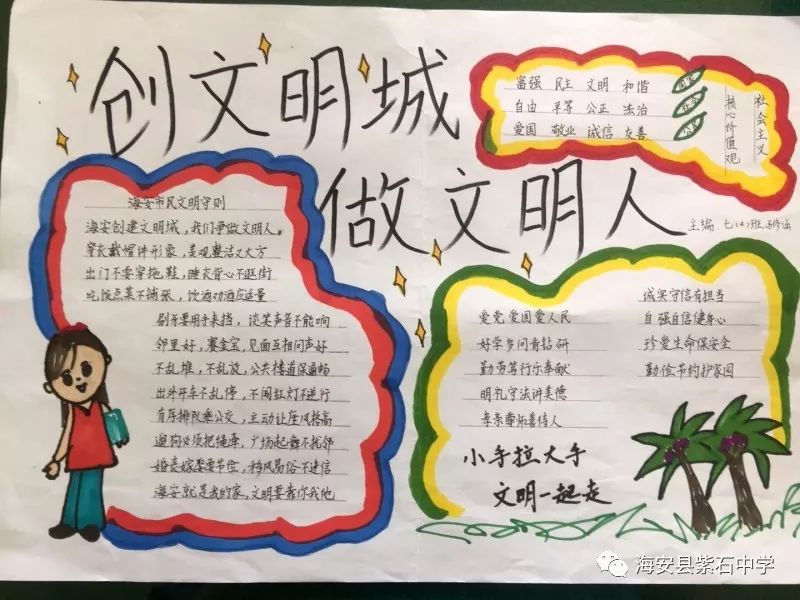 创文明城
做文明人
富强 民主 文明 和谐
自由 平等 公正 法治
爱国 敬业 诚信 友善
国家
社会
社会主义
核心价值观
主编:七(4)班
海安市民文明守则
海安创建文明城,我们争做文明人。
穿衣戴帽伴形象,美观整洁又大方
出门不要穿拖鞋,睡衣背心不逛街
吃饭点菜不铺张,饮酒劝酒应适量
剔牙要用手来挡,谈笑声音不能响
邻里好,赛金宝,见面互相问声好
不乱堆,不乱放,公共楼道保通畅
出外开车不乱停,不闯红灯不逆行
有序排队乘公交,主动让座风格高
遛狗必须把绳牵,广场起舞不扰邻
婚丧嫁娶要节俭,移风易俗不迷信
海安就是我的家,文明要靠你我他
爱党爱国爱人民
好学多问肯钻研
勤劳笃行乐奉献
明礼守法讲美德
孝亲尊师善待人
诚实守信有担当
自强自信健身心
珍爱生命保安全
勤俭节约护家园
小手拉大手
文明一起走
海安县紫石中学